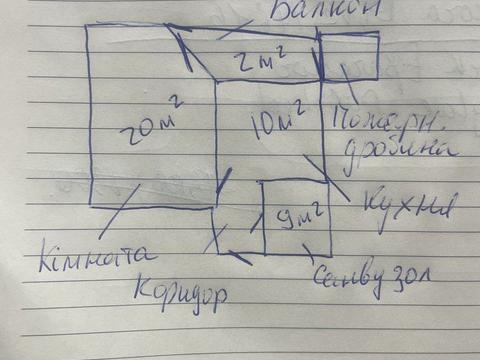 Балкон
2м²
20м²
10м²
Пожарн.
дробина
9м²
Кухня
Кімната
Коридор
Санвузол